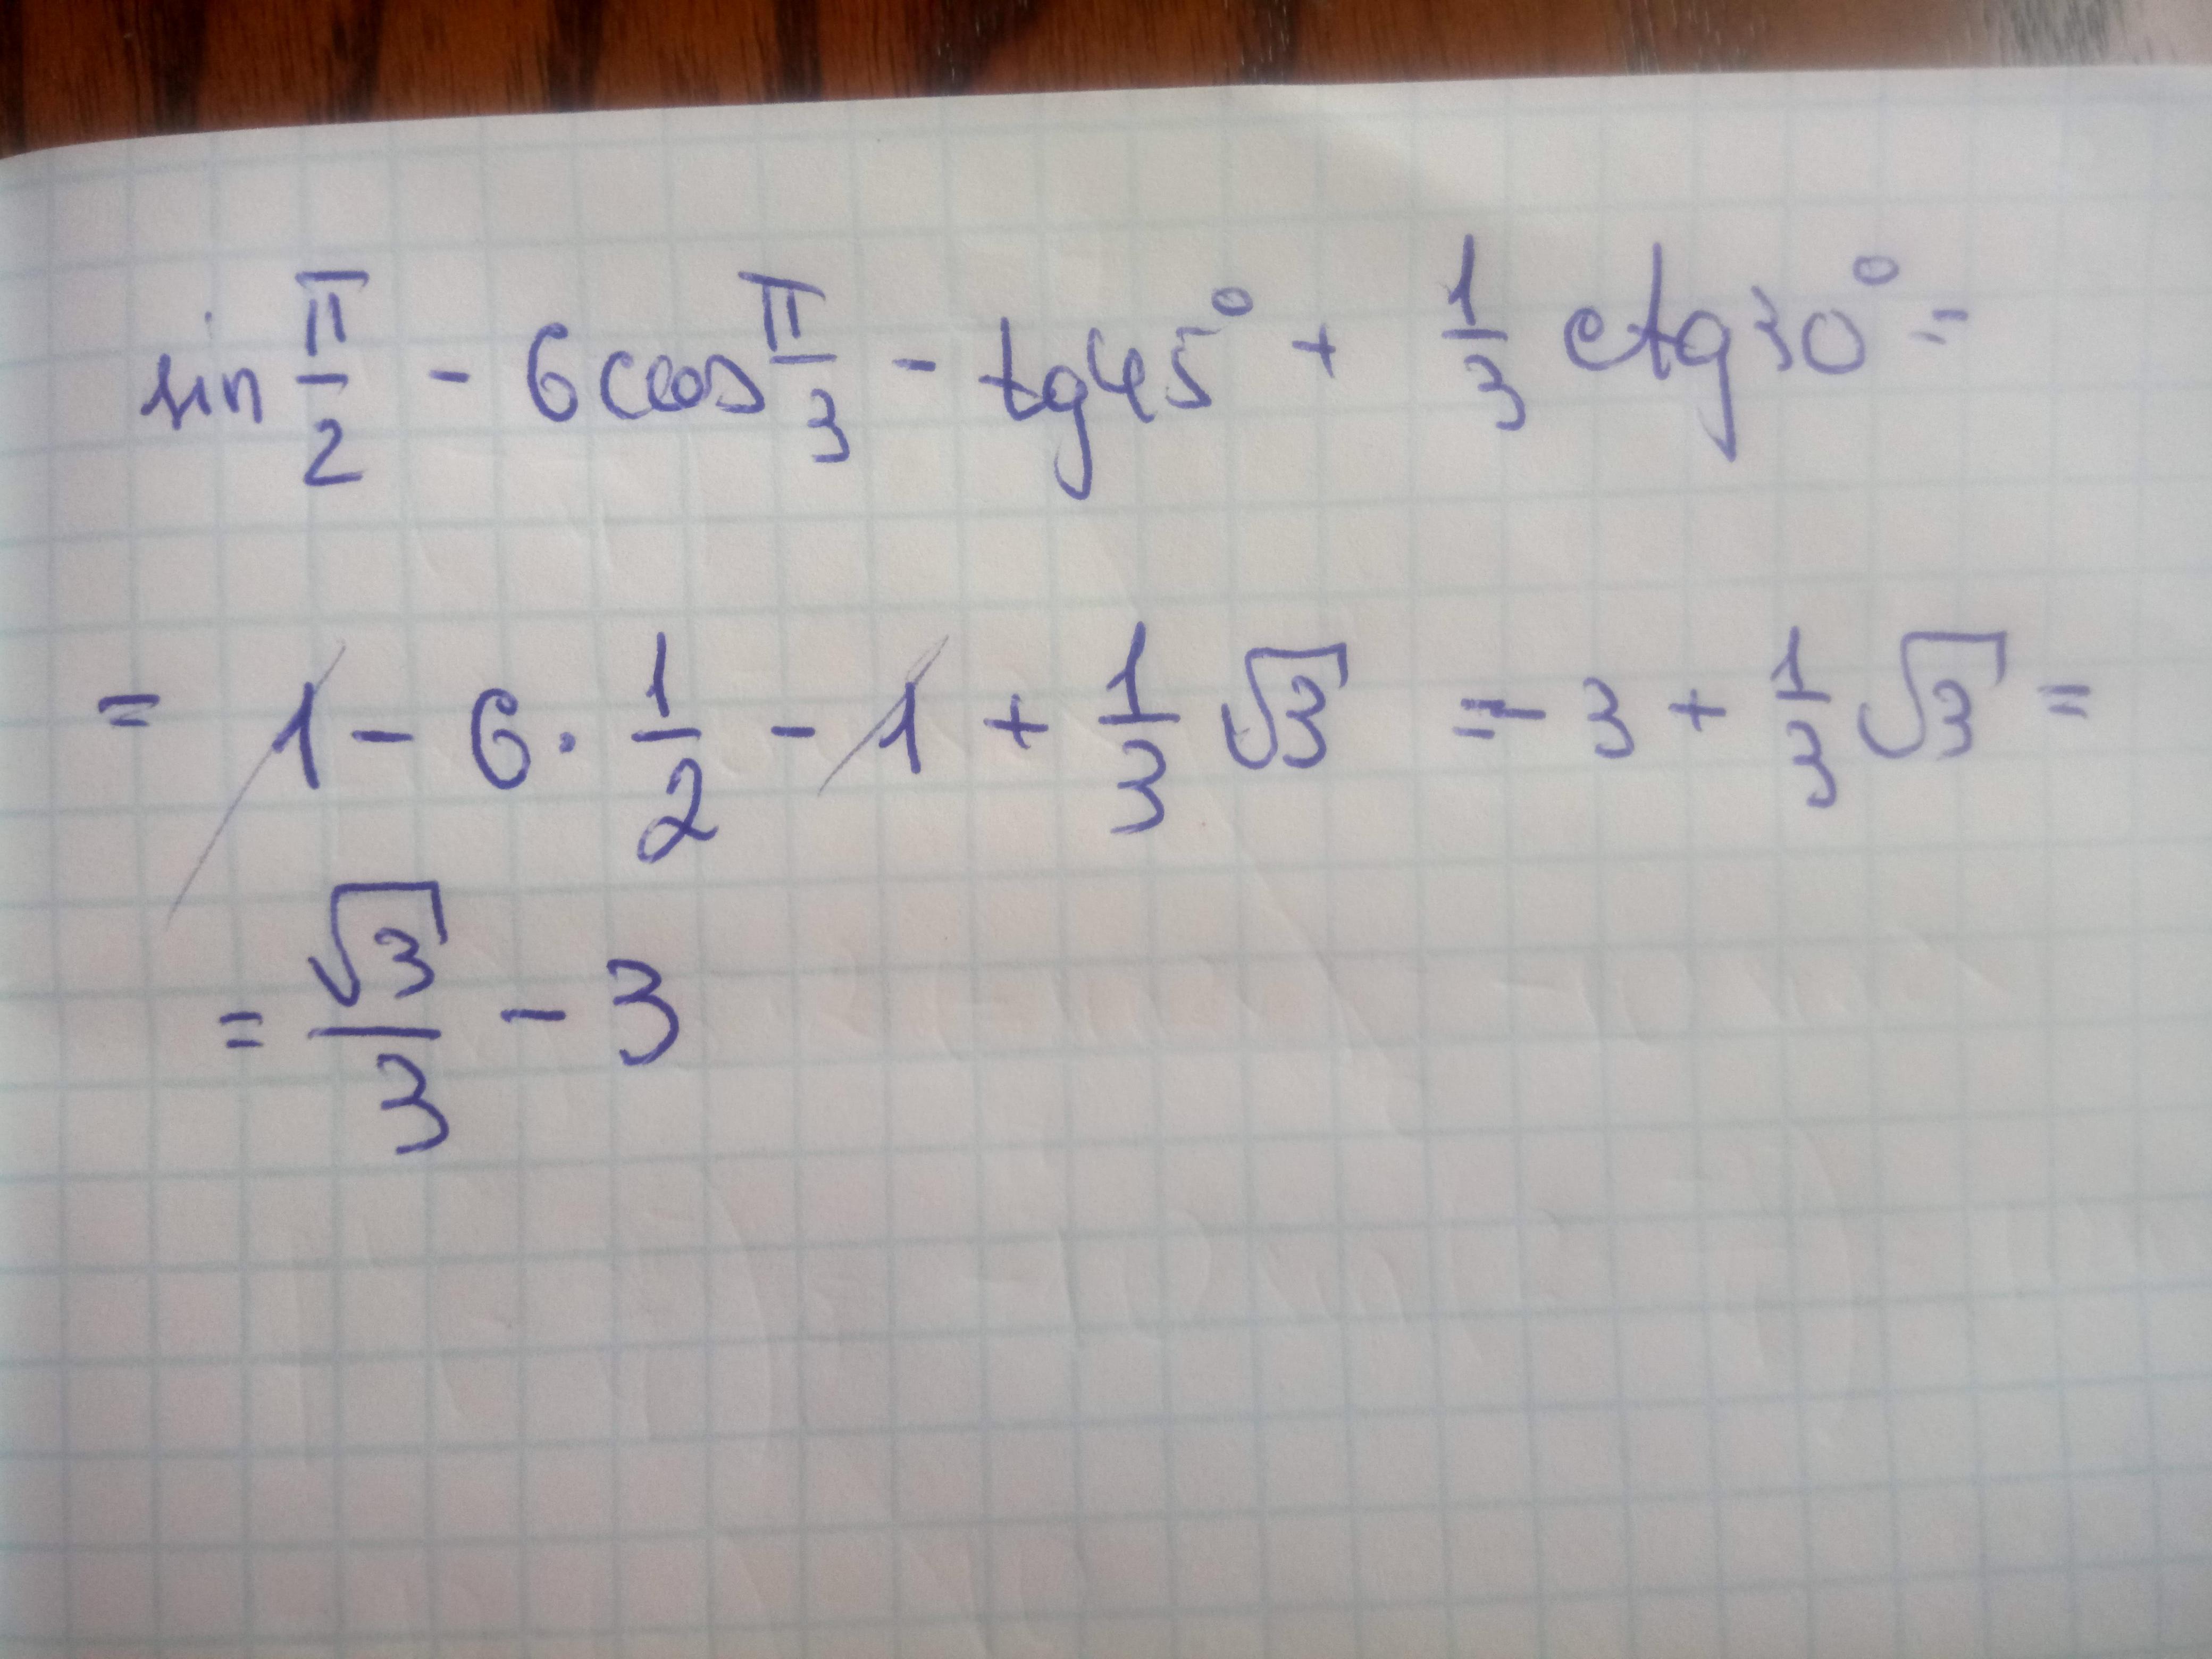 sin π/2 - 6 cos π/3 - tg 45° + 1/3 ctg 30° =
= 1 - 6 · 1/2 - 1 + 1/3 √3 = - 3 + 1/3 √3 =
= √3/3 - 3